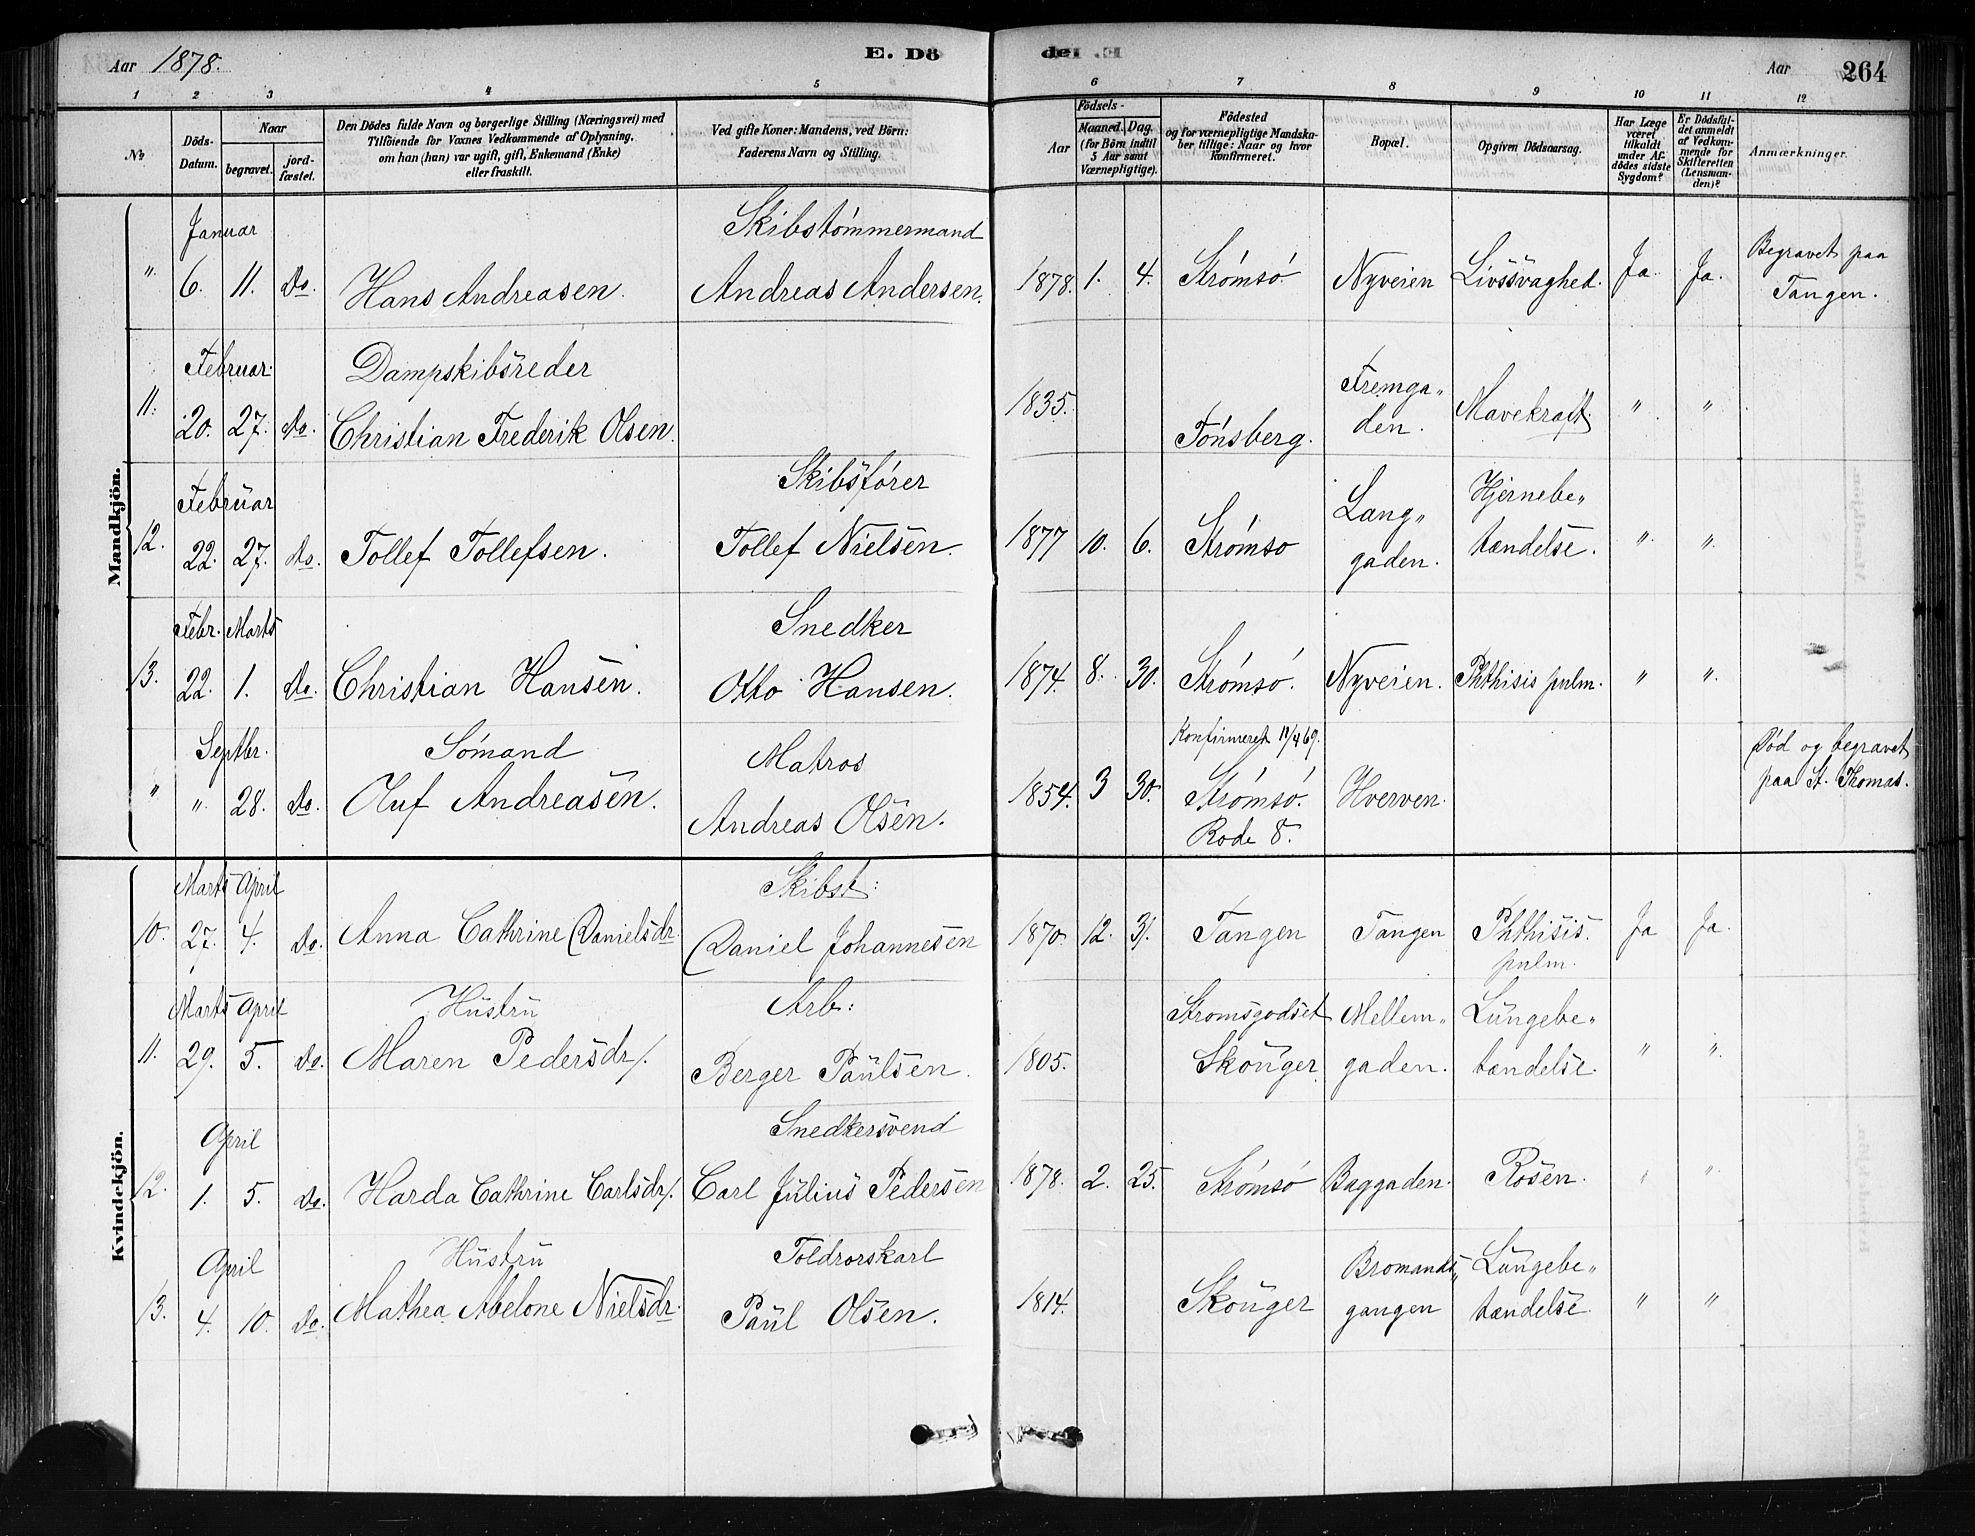 Aar 1878.
E. Dö
der E.
Aar
264
1 2 3 4 5 6 7 8 9 10 11 12
No
Döds-Datum.
Naar
begravet.
jord-fæstet.
Den Dödes fulde Navn og borgerlige Stilling (Næringsvei) med
Tilföiende for Voxnes Vedkommende af Oplysning,
om han (hun) var ugift, gift, Enkemand (Enke)
eller fraskilt.
Ved gifte Koner: Mandens, ved Börn:
Faderens Navn og Stilling.
Födsels-
Aar
Maaned. Dag.
(for Börn indtil
5 Aar samt
Værnepligtige).
Födested
og for værnepligtige Mandska-
ber tillige: Naar og hvor
konfirmeret.
Bopæl.
Opgiven Dödsaarsag.
Har Læge
været
tilkaldt
under Af-
dödes sidste
Sygdom?
Er Dödsfal-
det anmeldt
af Vedkom-
mende for
Skifteretten
(Lensman-
den)?
Anmærkninger.
Mandkjön.
Januar
Skibstømmermand
" 6. 11. Do. Hans Andreasen. Andreas Andersen. 1878. 1. 4. Strømsø. Nyveien Livssvaghed. Ja. Ja. Begravet paa
Tangen.
Februar. Dampskibsreder
11. 20. 27. Do. Christian Frederik Olsen. 1835. Tønsberg. Fremga"
den. Mavekræft. " "
Februar Skibsfører
12. 22. 27. Do. Tollef Tollefsen. Tollef Nielsen. 1877 10. 6. Strømsø Lang"
gaden. Hjernebe"
tændelse. " "
Febr. Marts Snedker
13. 22. 1. Do. Christian Hansen. Otto Hansen. 1874. 8. 30. Strømsø. Nyveien. Phthisis pulm. " "
Septbr. Sømand Matros Konfirmeret 11/4 69.
" " 28. Do. Oluf Andreasen. Andreas Olsen. 1854. 3 30. Strømsø.
Rode 8. Hverven. Død og begravet
paa St. Thomas.
Kvindekjön.
Marts April Skibst:
10. 27. 4. Do. Anna Cathrine Danielsdr. Daniel Johannesen 1870. 12. 31. Tangen Tangen Phthisis.
pulm. Ja Ja.
Marts April Hustru Arb:
11. 29. 5. Do. Maren Pedersdr/. Berger Paulsen. 1805. Strømsgodset
Skouger. Mellem"
gaden. Lungebe"
tændelse. " "
April Snedkersvend
12. 1. 5. Do. Harda Cathrine Carlsdr/. Carl Julius Pedersen 1878. 2. 25. Strømsø Baggaden. Rosen. " "
April Hustru Toldrorskarl
13. 4. 10. Do. Mathea Abelone Nielsdr. Paul Olsen. 1814. Skouger Bromands"
gangen Lungebe"
tændelse. " "